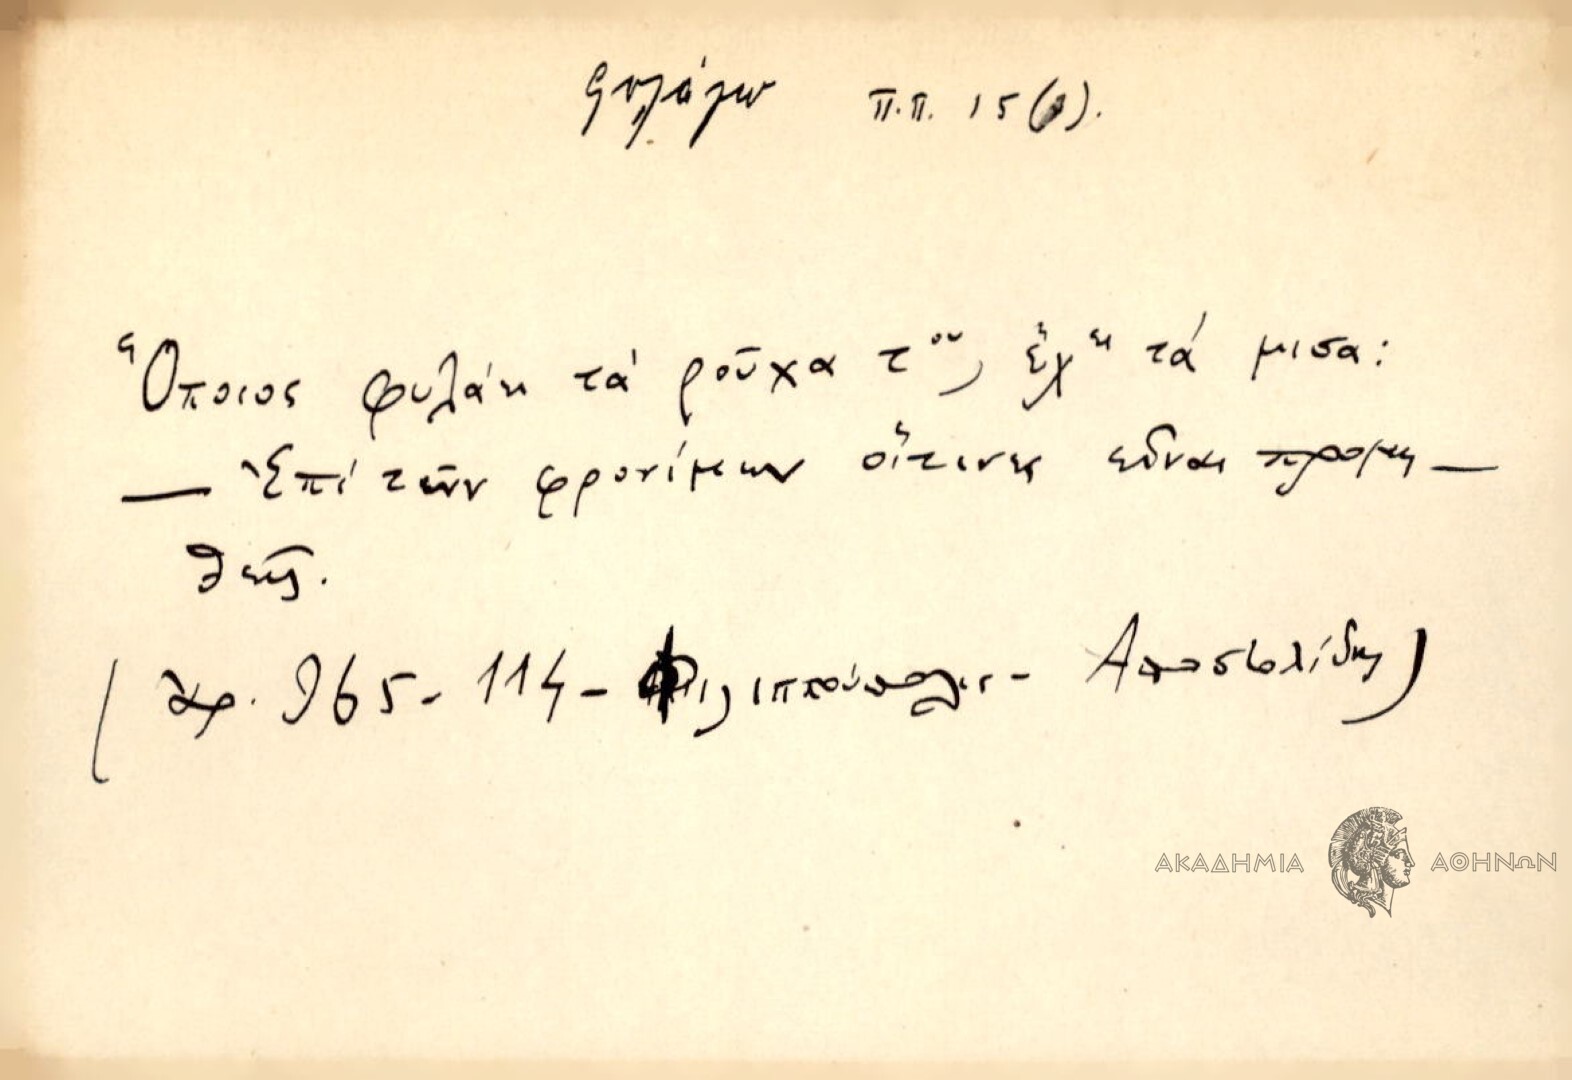 φυλάγω π.π. 15 (1).
Ὅποιος φυλάει τά ροῦχα του, ἔχει τά μισα:
— Ἐπί τῶν φρονίμων οἵτινες εἶναι προμη—
θεῖς.
(χφ. 965 - 114 - Φιλιππούπολις - Αποστολίδης)
ΑΚΑΔΗΜΙΑ ΑΘΗΝΩΝ